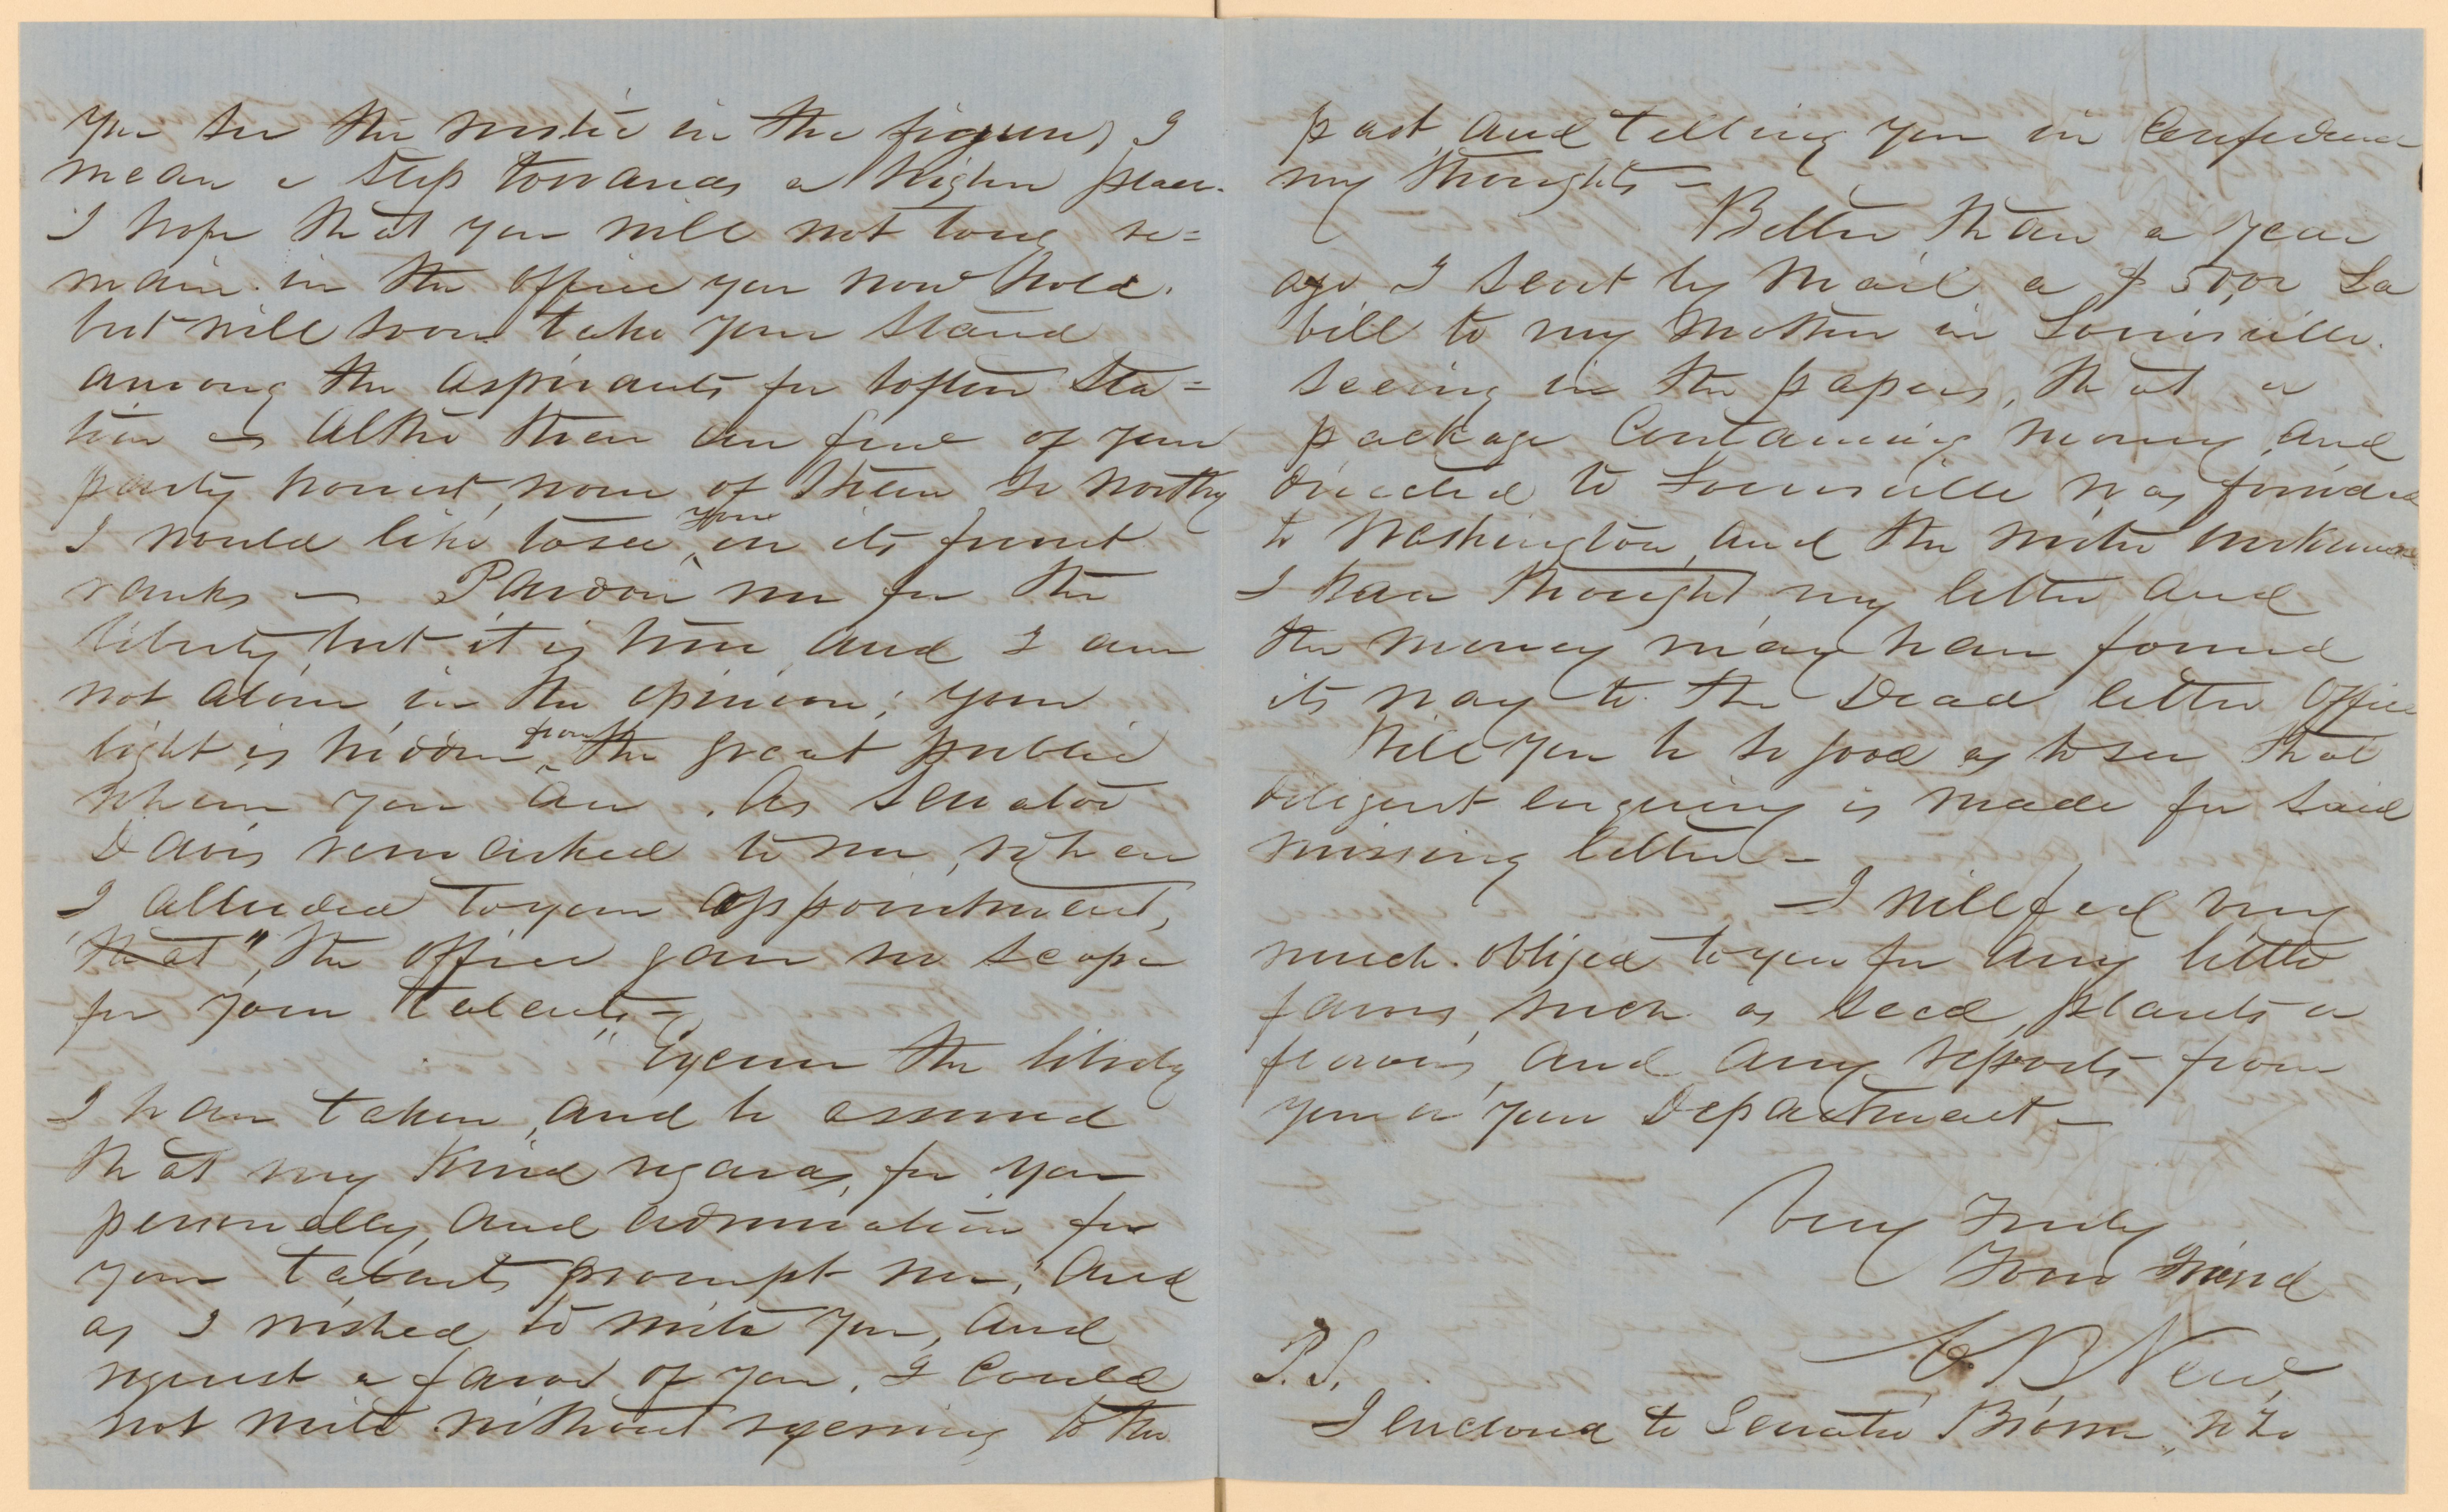 you see the mistic in the figure) I
mean a step towards a higher place.
I hope that you will not long re=
main in the office you now hold.
but will soon take your stand
among the aspirants for loftier sta=
tion as altho there are few of your
party honest, none of them so worthy
I would like to see you in its front
ranks — Pardon me for the
liberty, but it is true and I am
not alone in the opinion; your
light is hidden from the great public
where you are. As Senator
Davis remarked to me, when
I alluded to your appointment,
that "the office gave no scope
for your talents" —
Excuse the liberty
I have taken, and be assured
that my kind regards, for you
personally, and admiration for
your talents prompt me; and
as I wished to write you, and
request a favor of you, I could
not write without to the
past, and telling you in confidence
my thoughts —
Better than a year
ago I sent by mail a $50,00 La
bill to my mother in Louisville.
seeing in the papers, that a
package containing money and
directed to Louisville was forwarded
to Washington, and the writer unknown
I have thought my letter and
the money may have found
its way to the Dead letter office
Will you be so good as to see that
diligent enquiry is made for said
missing letter —
I will feel very
much obliged to you for any little
favors, such as seed, plants or
flowers, and any reports from
you or your Department —
Very Truly
Your Friend
C B New
P.S.
I enclosed to Senator Brown, who